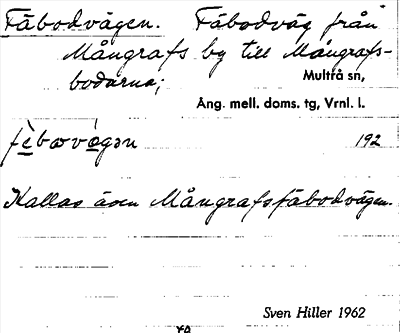 Fäbodvägen. Fäbodväg från
Mångrafs by till Mångrafs-
bodarna;
Multrå sn,
Ång. mell. doms. tg, Vrnl. l.
192
Kallas även Mångrafsfäbodvägen.
Sven Hiller 1962